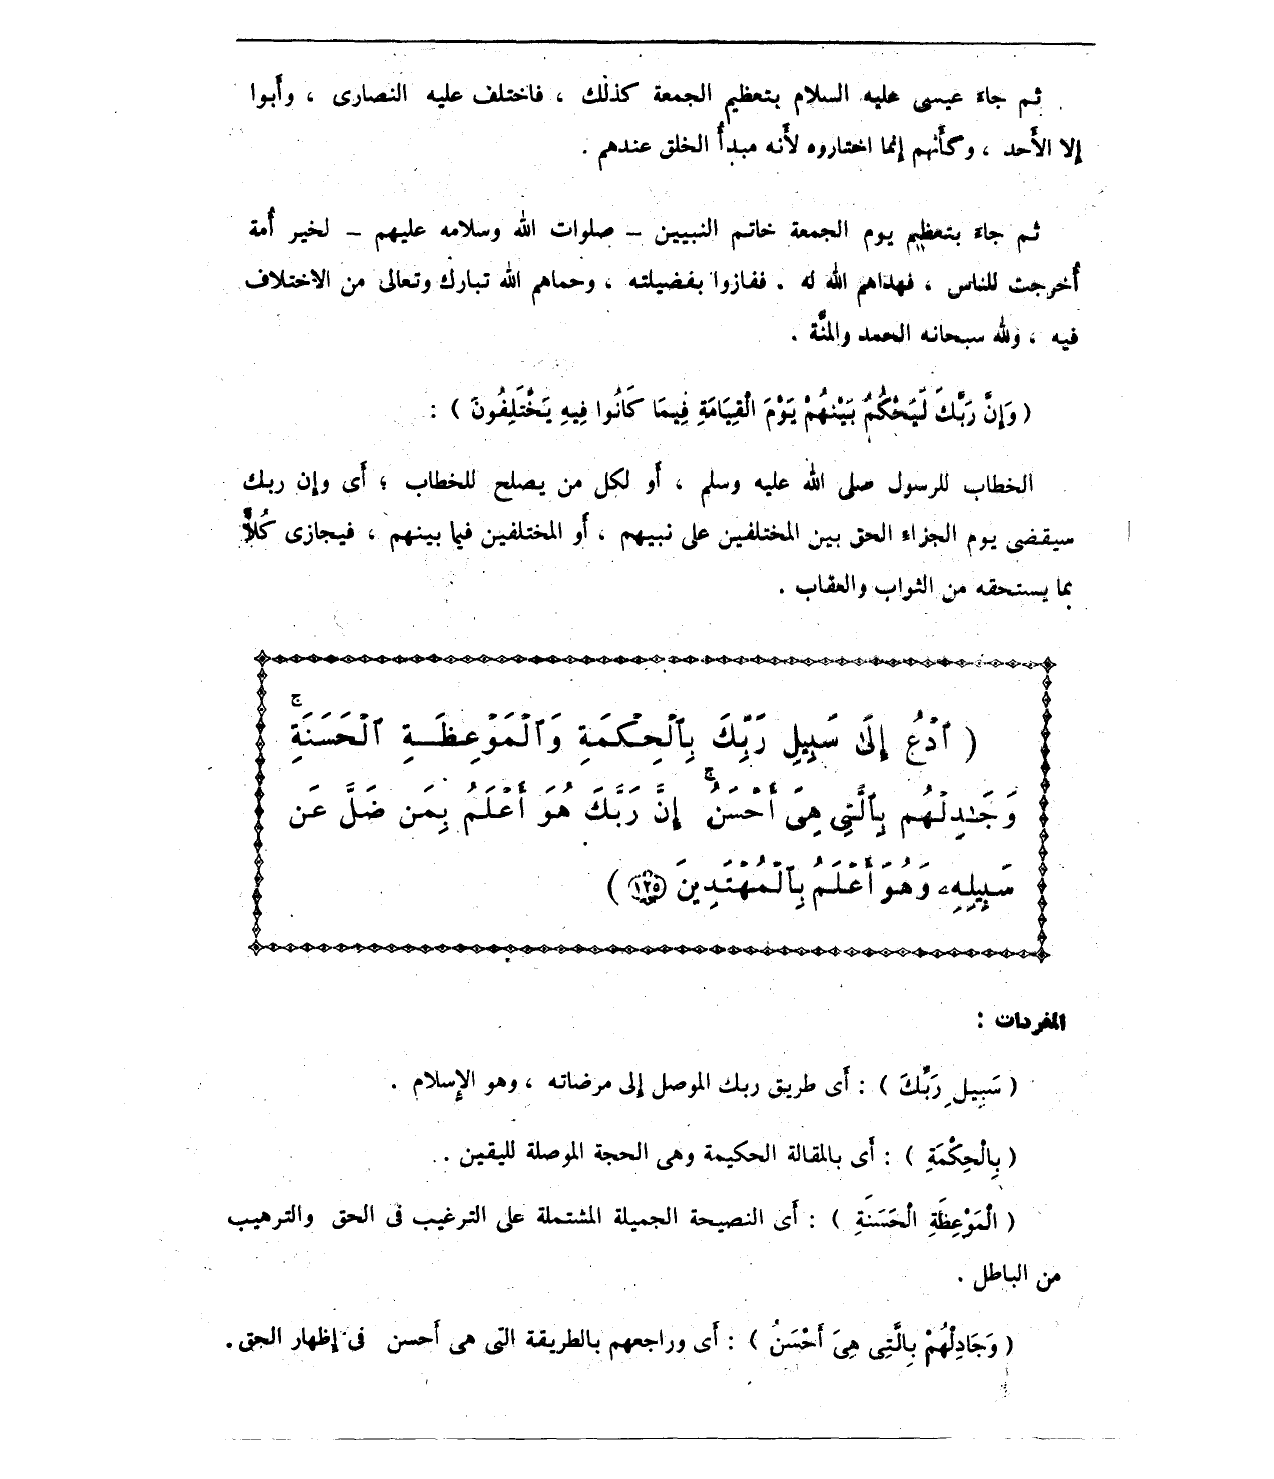 ثم جاء عيسى عليه السلام بتعظيم الجمعة كذلك ، فاختلف عليه النصارى ، وأبوا
إلا الأحد ، وكأنهم إنما اختاروه لأنه مبدأ الخلق عندهم .
ثم جاء بتعظيم يوم الجمعة خاتم النبيين – صلوات الله وسلامه عليهم – لخير أمة
أخرجت للناس ، فهداهم الله له . ففازوا بفضيلته ، وحماهم الله تبارك وتعالى من الاختلاف
فيه ، ولله سبحانه الحمد والمنَّة .
( وَإِنَّ رَبَّكَ لَيَحْكُمُ بَيْنَهُمْ يَوْمَ الْقِيَامَةِ فِيمَا كَانُوا فِيهِ يَخْتَلِفُونَ ) :
الخطاب للرسول صلى الله عليه وسلم ، أو لكل من يصلح للخطاب ؛ أى وإن ربك
سيقضى يوم الجزاء الحق بين المختلفين على نبيهم ، أو المختلفين فيما بينهم ، فيجازى كُلاًّ
بما يستحقه من الثواب والعقاب .
( ٱدْعُ إِلَىٰ سَبِيلِ رَبِّكَ بِٱلْحِكْمَةِ وَٱلْمَوْعِظَةِ ٱلْحَسَنَةِ ۖ
وَجَٰدِلْهُم بِٱلَّتِى هِىَ أَحْسَنُ ۚ إِنَّ رَبَّكَ هُوَ أَعْلَمُ بِمَن ضَلَّ عَن
سَبِيلِهِۦ وَهُوَ أَعْلَمُ بِٱلْمُهْتَدِينَ ١٢٥ )
المفردات :
( سَبِيلِ رَبِّكَ ) : أى طريق ربك الموصل إلى مرضاته ، وهو الإسلام .
( بِالْحِكْمَةِ ) : أى بالمقالة الحكيمة وهى الحجة الموصلة لليقين .
( الْمَوْعِظَةِ الْحَسَنَةِ ) : أى النصيحة الجميلة المشتملة على الترغيب فى الحق والترهيب
من الباطل .
( وَجَادِلْهُمْ بِالَّتِى هِىَ أَحْسَنُ ) : أى وراجعهم بالطريقة التى هى أحسن فى إظهار الحق .